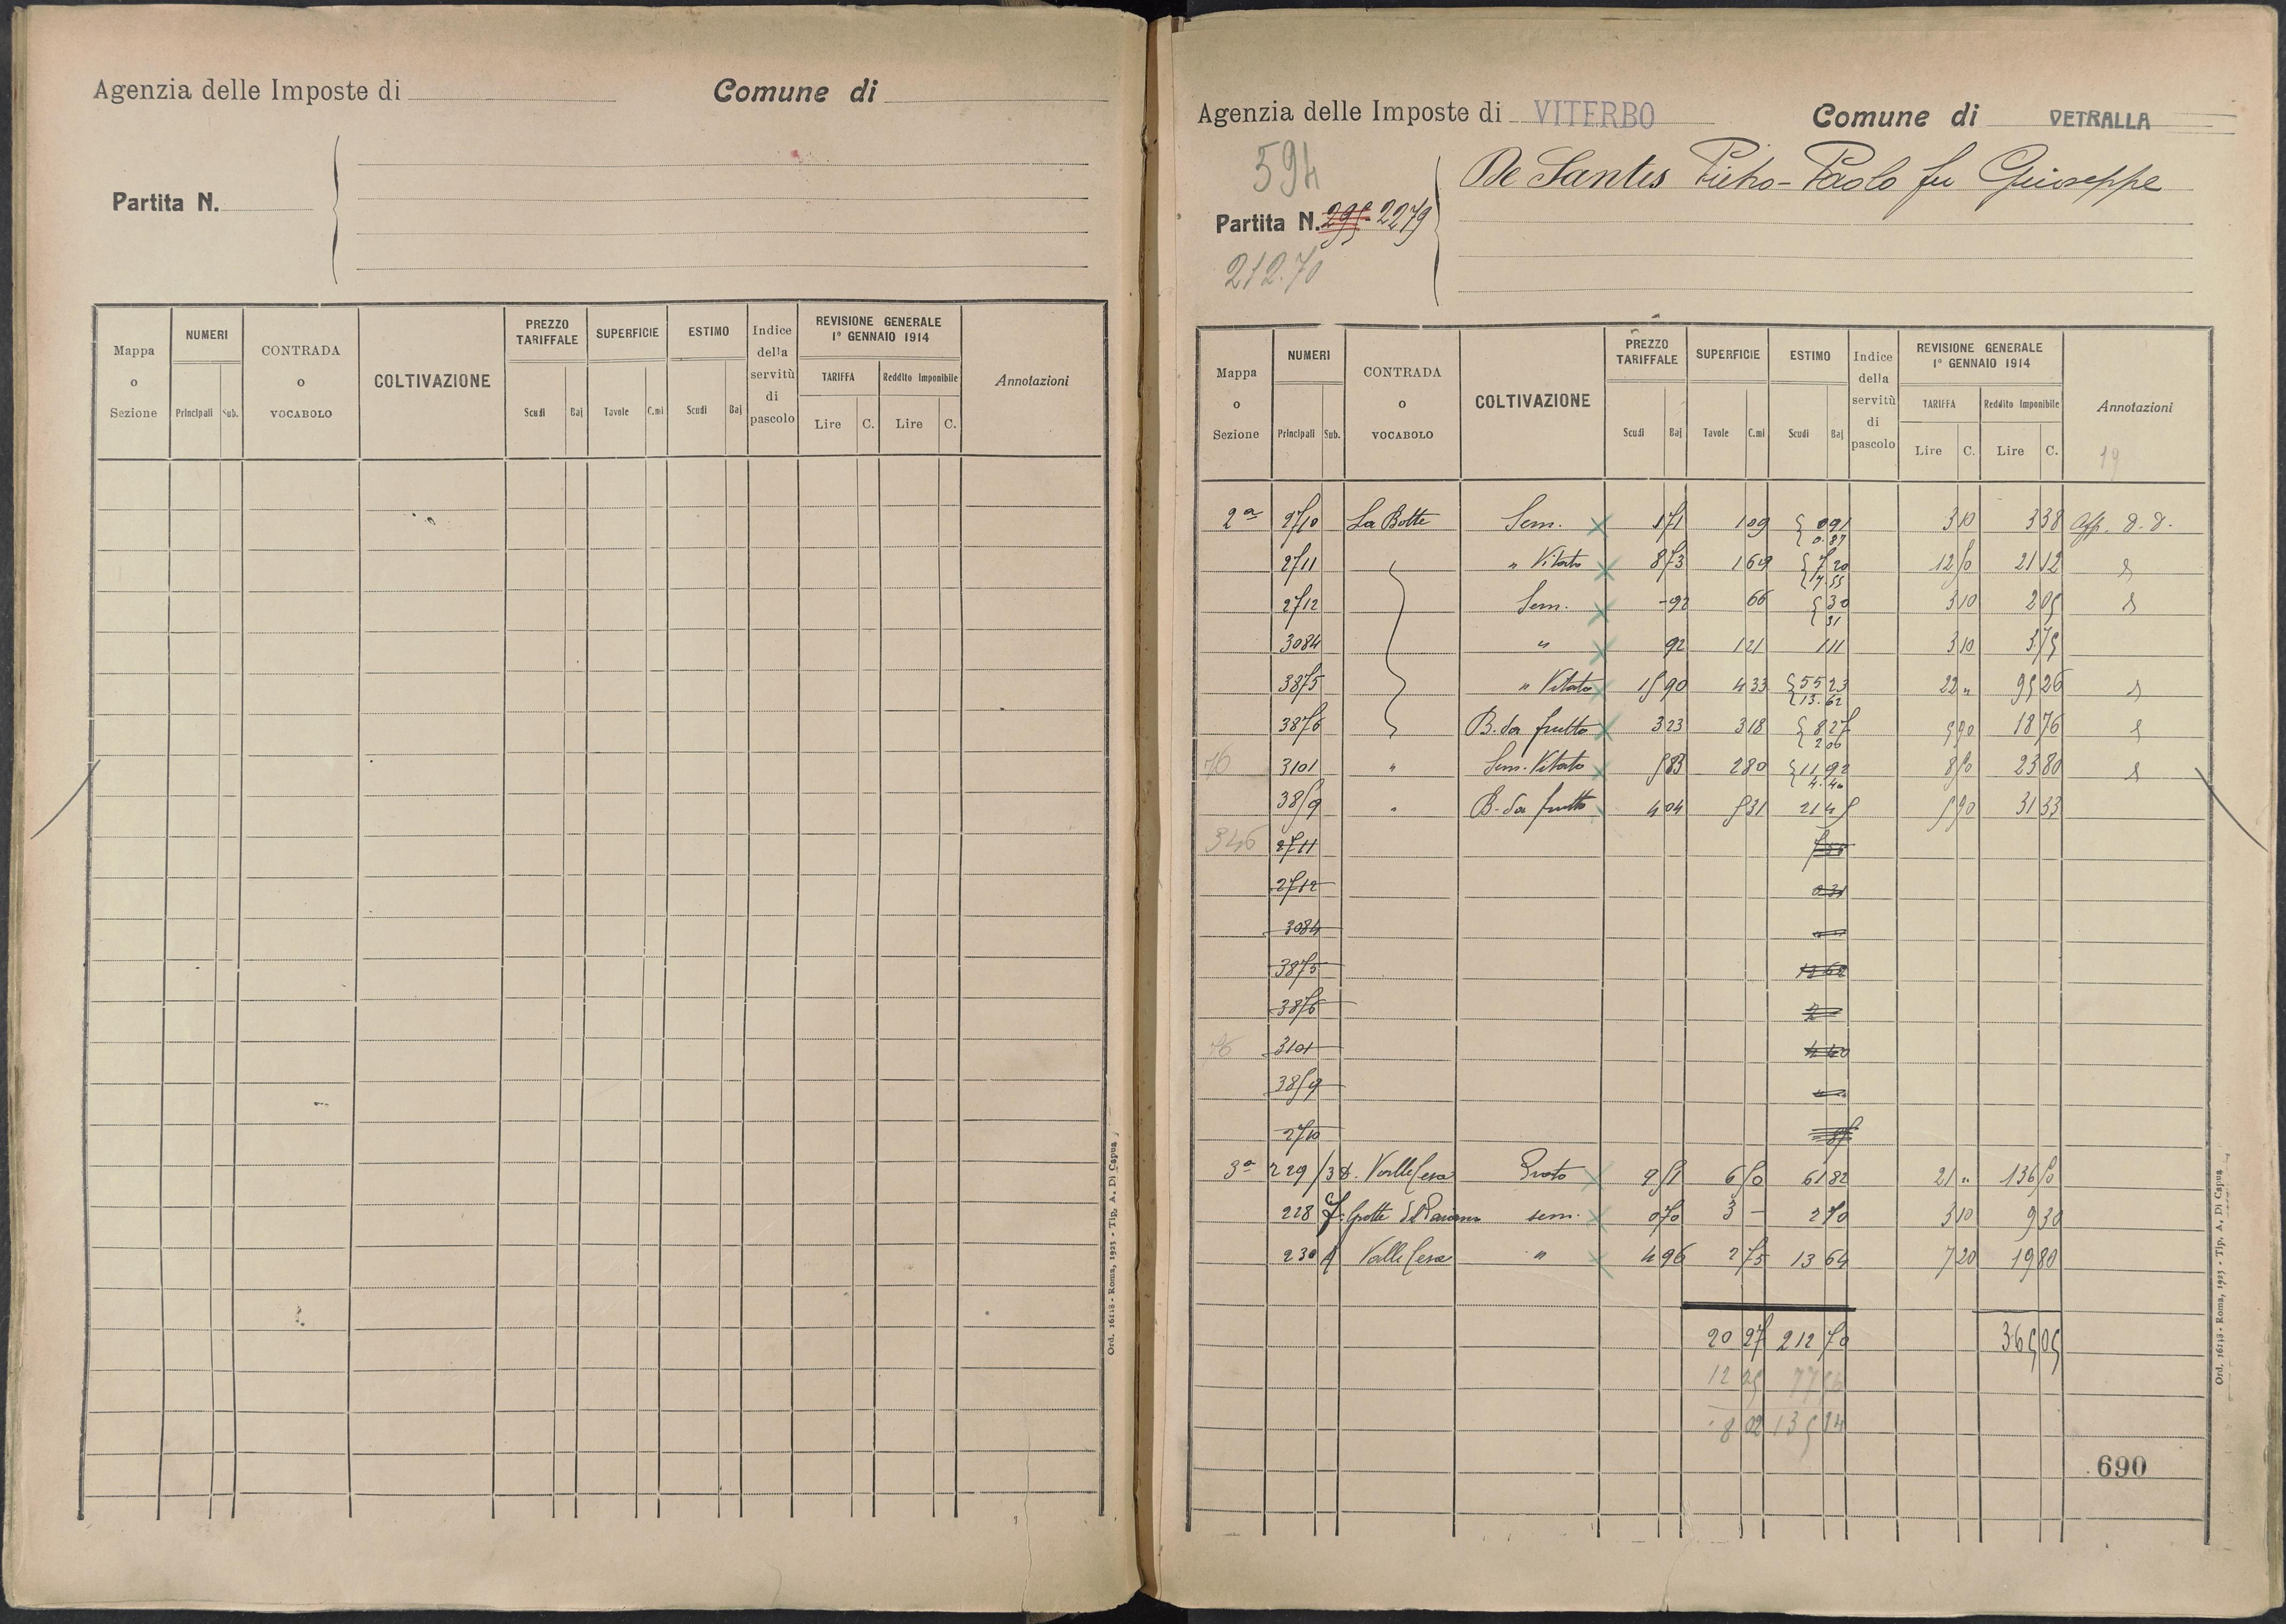 Agenzia delle Imposte di
Comune di
Partita N.
Mappa o Sezione
NUMERI
Principali Sub.
CONTRADA o VOCABOLO
COLTIVAZIONE
PREZZO TARIFFALE
Scudi Baj
SUPERFICIE
Tavole C.mi
ESTIMO
Scudi Baj
Indice della servitù di pascolo
REVISIONE GENERALE
1º GENNAIO 1914
TARIFFA
Lire C.
Reddito Imponibile
Lire C.
Annotazioni
Ord. 16118 - Roma, 1923 - Tip. A. Di Capua
Agenzia delle Imposte di VITERBO
Comune di VETRALLA
594
De Santis Pietro-Paolo fu Giuseppe
Partita N. 295 2279
212.70
Mappa o Sezione
NUMERI
Principali Sub.
CONTRADA o VOCABOLO
COLTIVAZIONE
PREZZO TARIFFALE
Scudi Baj
SUPERFICIE
Tavole C.mi
ESTIMO
Scudi Baj
Indice della servitù di pascolo
REVISIONE GENERALE
1º GENNAIO 1914
TARIFFA
Lire C.
Reddito Imponibile
Lire C.
Annotazioni
19
2ª 2710 La Botte Sem. 1 09 0 91 3 10 3 38 Aff.
0.87
2711 " Vitato 1 69 7 20 12 50 21 12
2712 Sem. - 92 66 30 3 10 2 05
31
3084 " 92 1 21 1 11 3 10 3 75
3875 " Vitato 15 90 4 33 55 23 22 " 95 26
13.62
3876 B. da frutto 3 23 3 18 8 27 5 90 18 76
2 06
76 3101 " Sem. Vitato 5 83 2 80 11 92 8 50 23 80
4.40
3859 " B. da frutto 4 04 5 31 21 45 5 90 31 33
346 2711
2712 0 31
3084
3875 13 62
3876 2
76 3101 4 40
3859
2710 87
3ª 229 /3 Valle Cesa Prato 9 51 6 50 61 82 21 " 136 50
228 Grotte sem. 0 70 3 - 2 10 3 10 9 30
230 Valle Cesa " 4 96 2 75 13 64 7 20 19 80
20 27 212 70 365 05
12 25 77 56
8 02 135 14
690
Ord. 16118 - Roma, 1923 - Tip. A. Di Capua